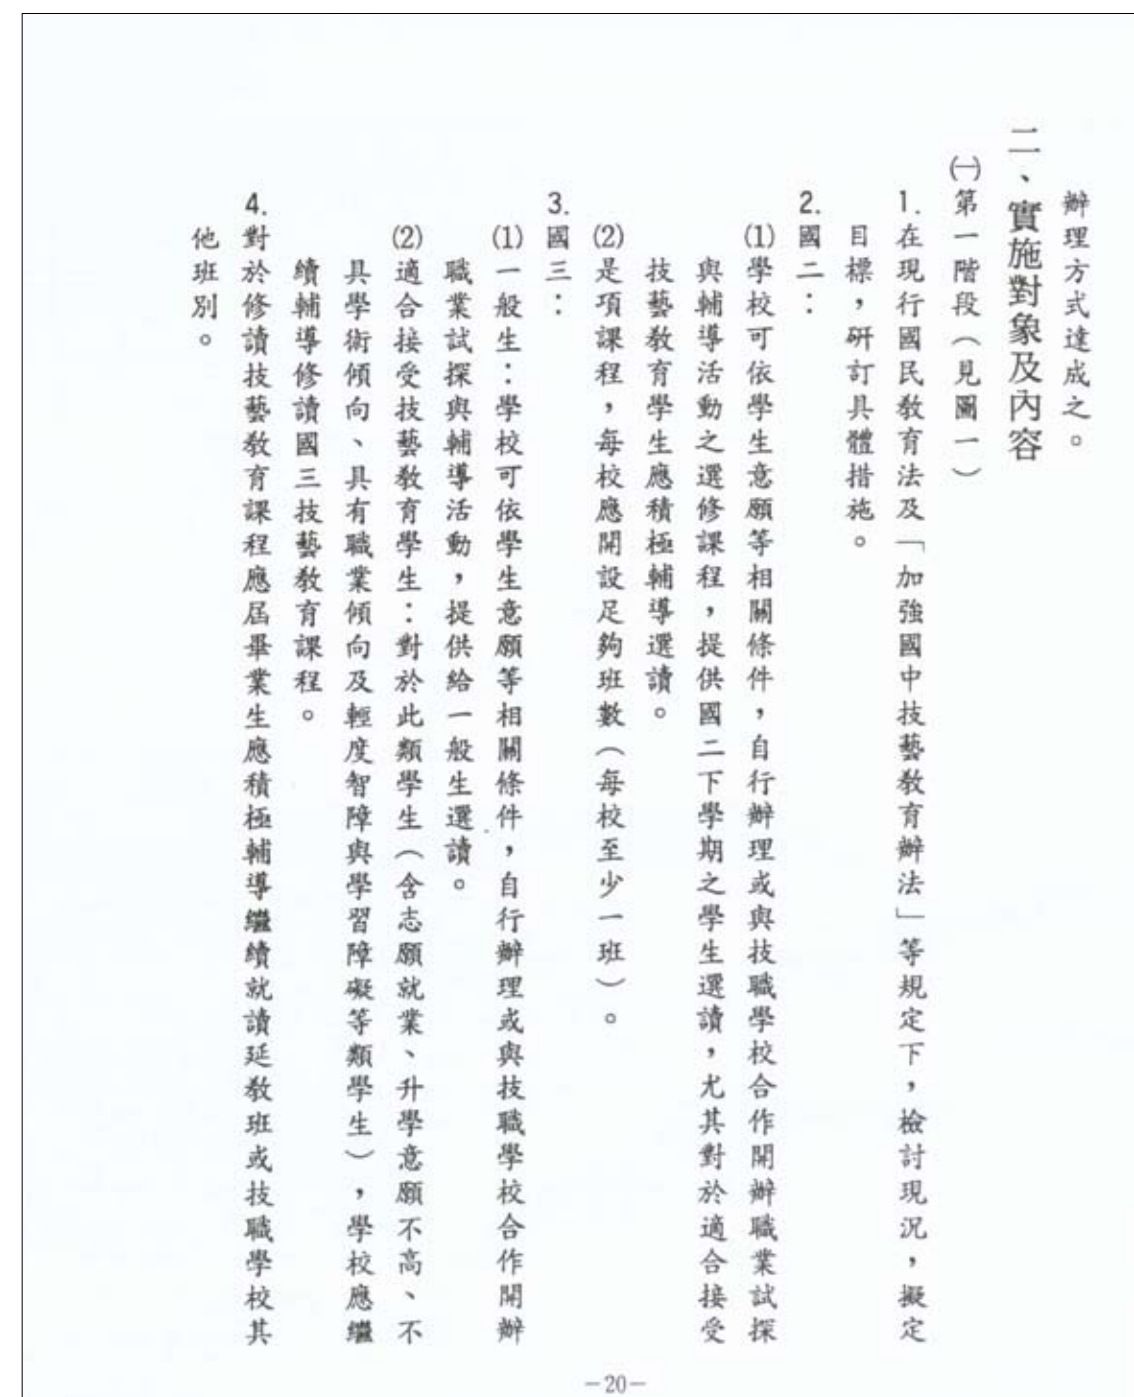 辦理方式達成之。
二、實施對象及內容
㈠第一階段（見圖一）
1.在現行國民教育法及「加強國中技藝教育辦法」等規定下，檢討現況，擬定
目標，研訂具體措施。
2.國二：
⑴學校可依學生意願等相關條件，自行辦理或與技職學校合作開辦職業試探
與輔導活動之選修課程，提供國二下學期之學生選讀，尤其對於適合接受
技藝教育學生應積極輔導選讀。
⑵是項課程，每校應開設足夠班數（每校至少一班）。
3.國三：
⑴一般生：學校可依學生意願等相關條件，自行辦理或與技職學校合作開辦
職業試探與輔導活動，提供給一般生選讀。
⑵適合接受技藝教育學生：對於此類學生（含志願就業、升學意願不高、不
具學術傾向、具有職業傾向及輕度智障與學習障礙等類學生），學校應繼
續輔導修讀國三技藝教育課程。
4.對於修讀技藝教育課程應屆畢業生應積極輔導繼續就讀延教班或技職學校其
他班別。
－20－